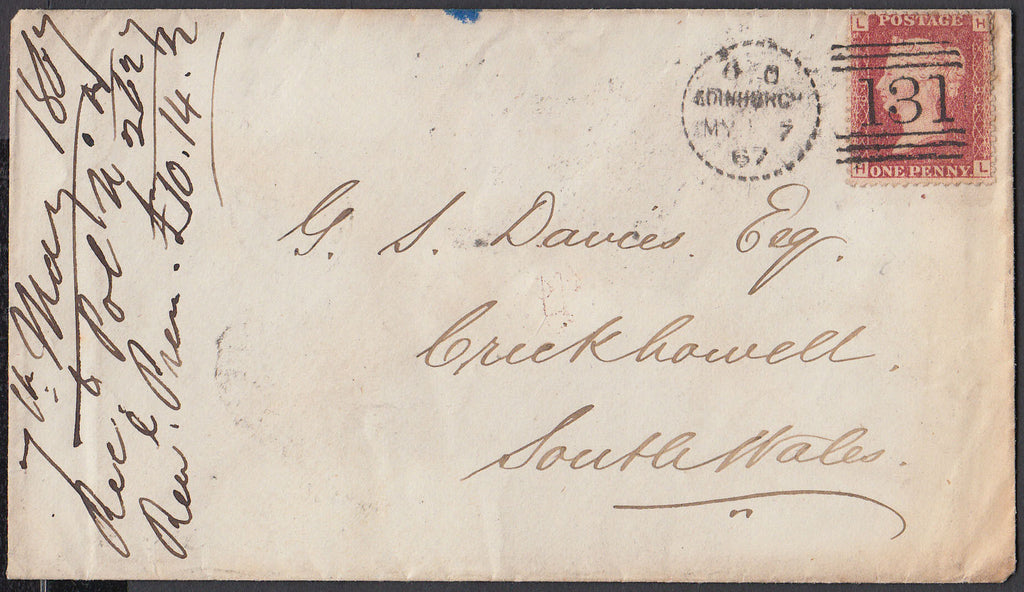 7th May 1867
Rec'd Pol
Ren'l Prem. £10.14.
EDINBURGH
MY 7
67
L H
POSTAGE
131
H ONE PENNY. L
G. S. Davies Esq.
Crickhowell.
South Wales.